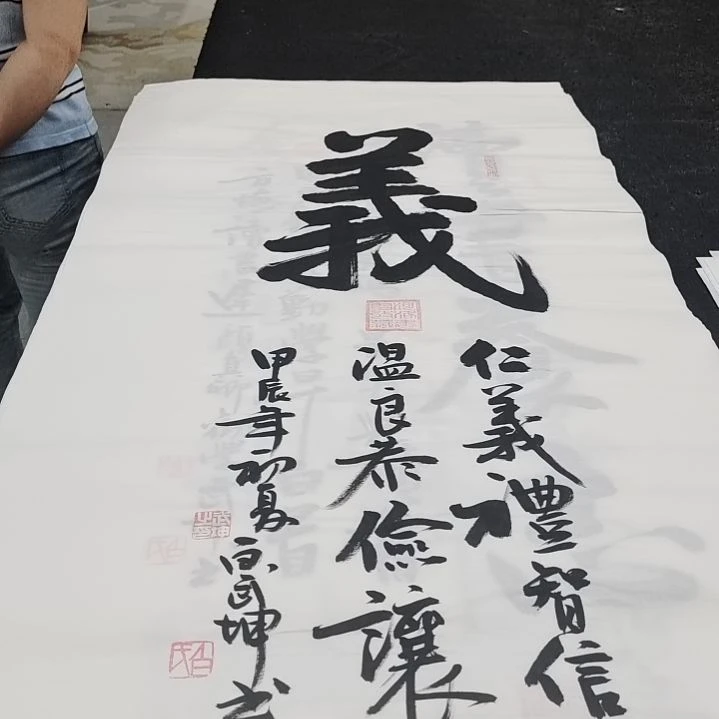 義
仁義禮智信
溫良恭儉讓
甲辰年初夏
武坤